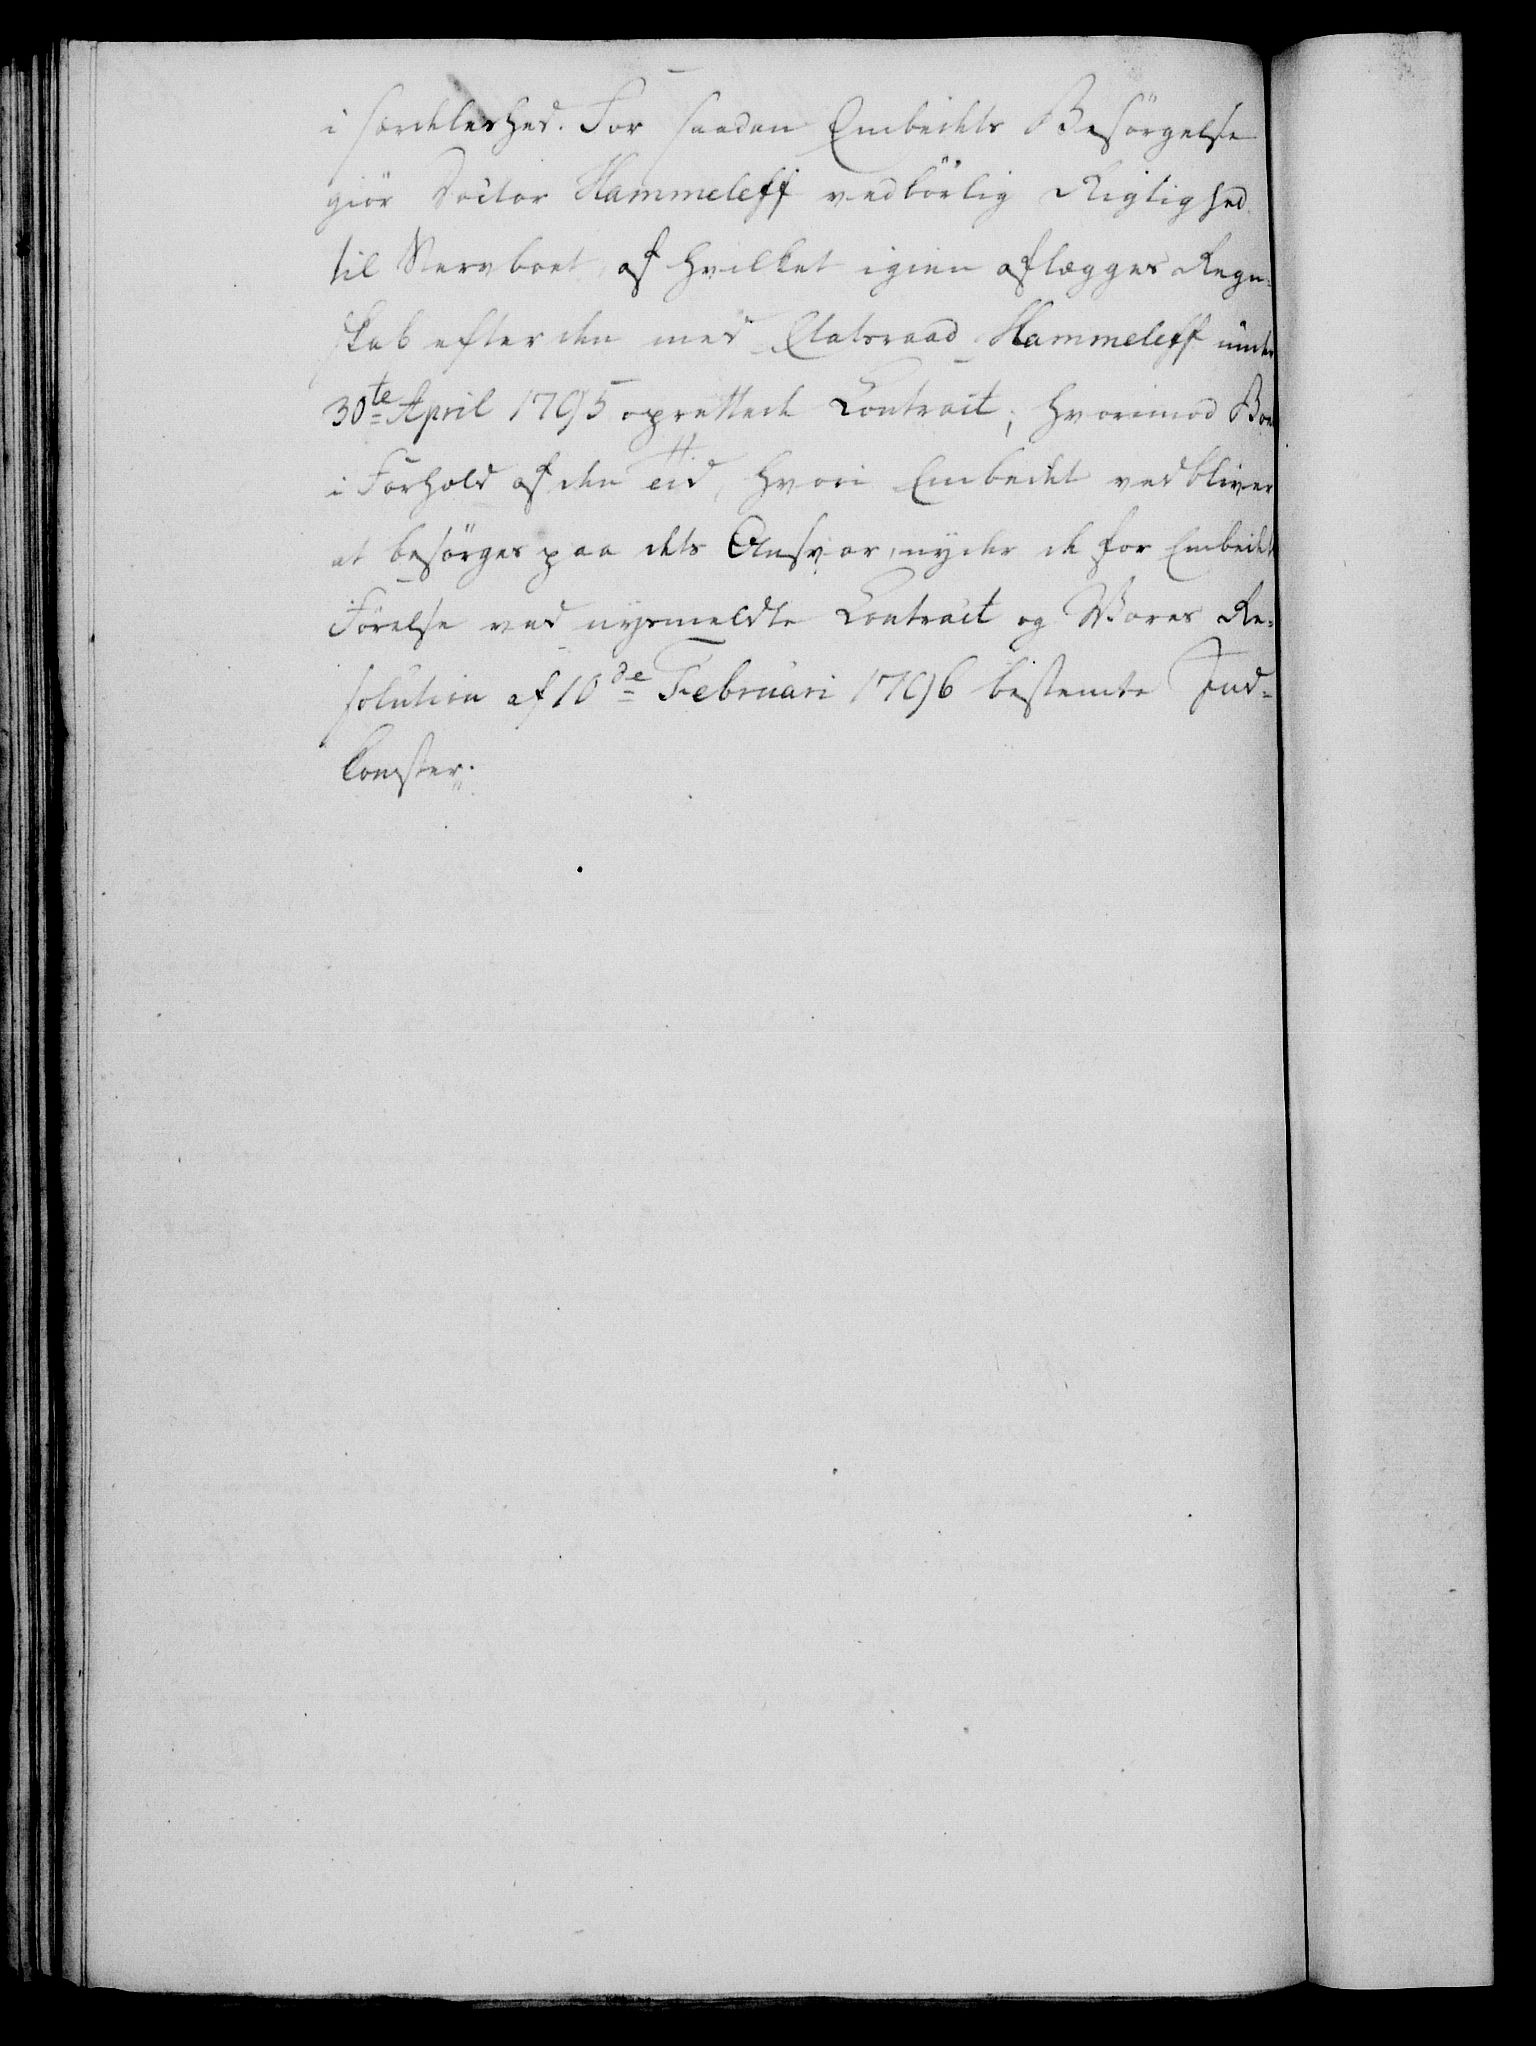 i særdeleshed. For saadan Embedets Besörgelse
giör Doctor Hammeleff vedbörlig Rigtighed
til Stervboet, af hvilket igien aflægges Regn-
skab efter den med Etatsraad Hammeleff under
30te April 1795 oprettede Contract; hvorimod Boet
i Forhold af den Tid, hvori Embedet vedbliver
at besörges paa dets Ansvar, nyder de for Embedets
Förelse ved nysmeldte Contract og Vores Re-
solution af 10de Februari 1796 bestemte Ind-
komster.